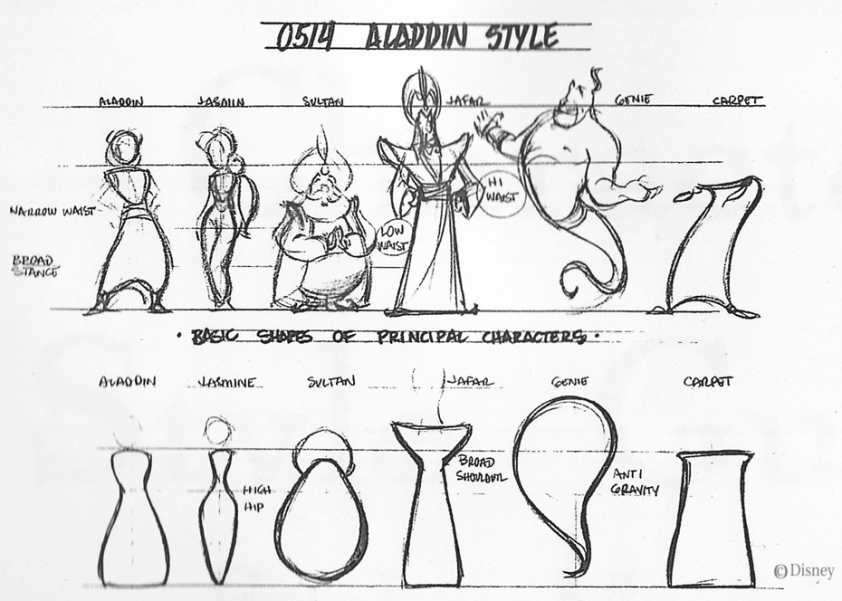 0514 ALADDIN STYLE
ALADDIN JASMIN SULTAN JAFAR GENIE CARPET
NARROW WAIST
HI WAIST
LOW WAIST
BROAD STANCE
· BASIC SHAPES OF PRINCIPAL CHARACTERS ·
ALADDIN JASMINE SULTAN JAFAR GENIE CARPET
BROAD SHOULDER
ANTI GRAVITY
HIGH HIP
© Disney